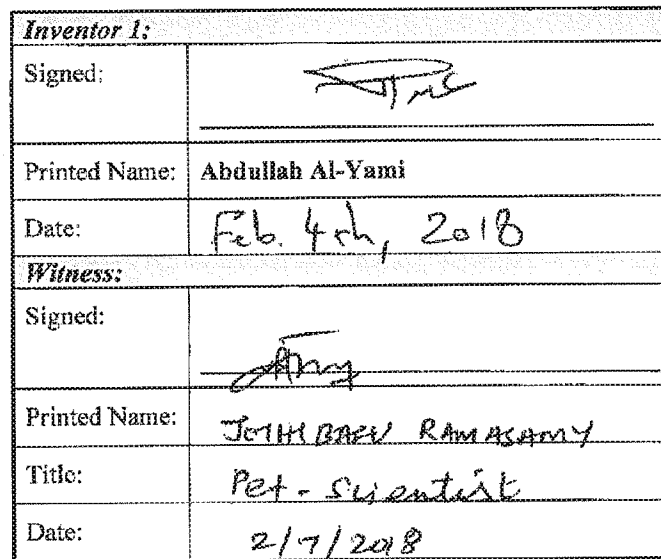 Inventor 1:
Signed:
Printed Name: Abdullah Al-Yami
Date: Feb. 4th, 2018
Witness:
Signed:
Printed Name: RAMASAMY
Title: Pet. Scientist
Date: 2/7/2018